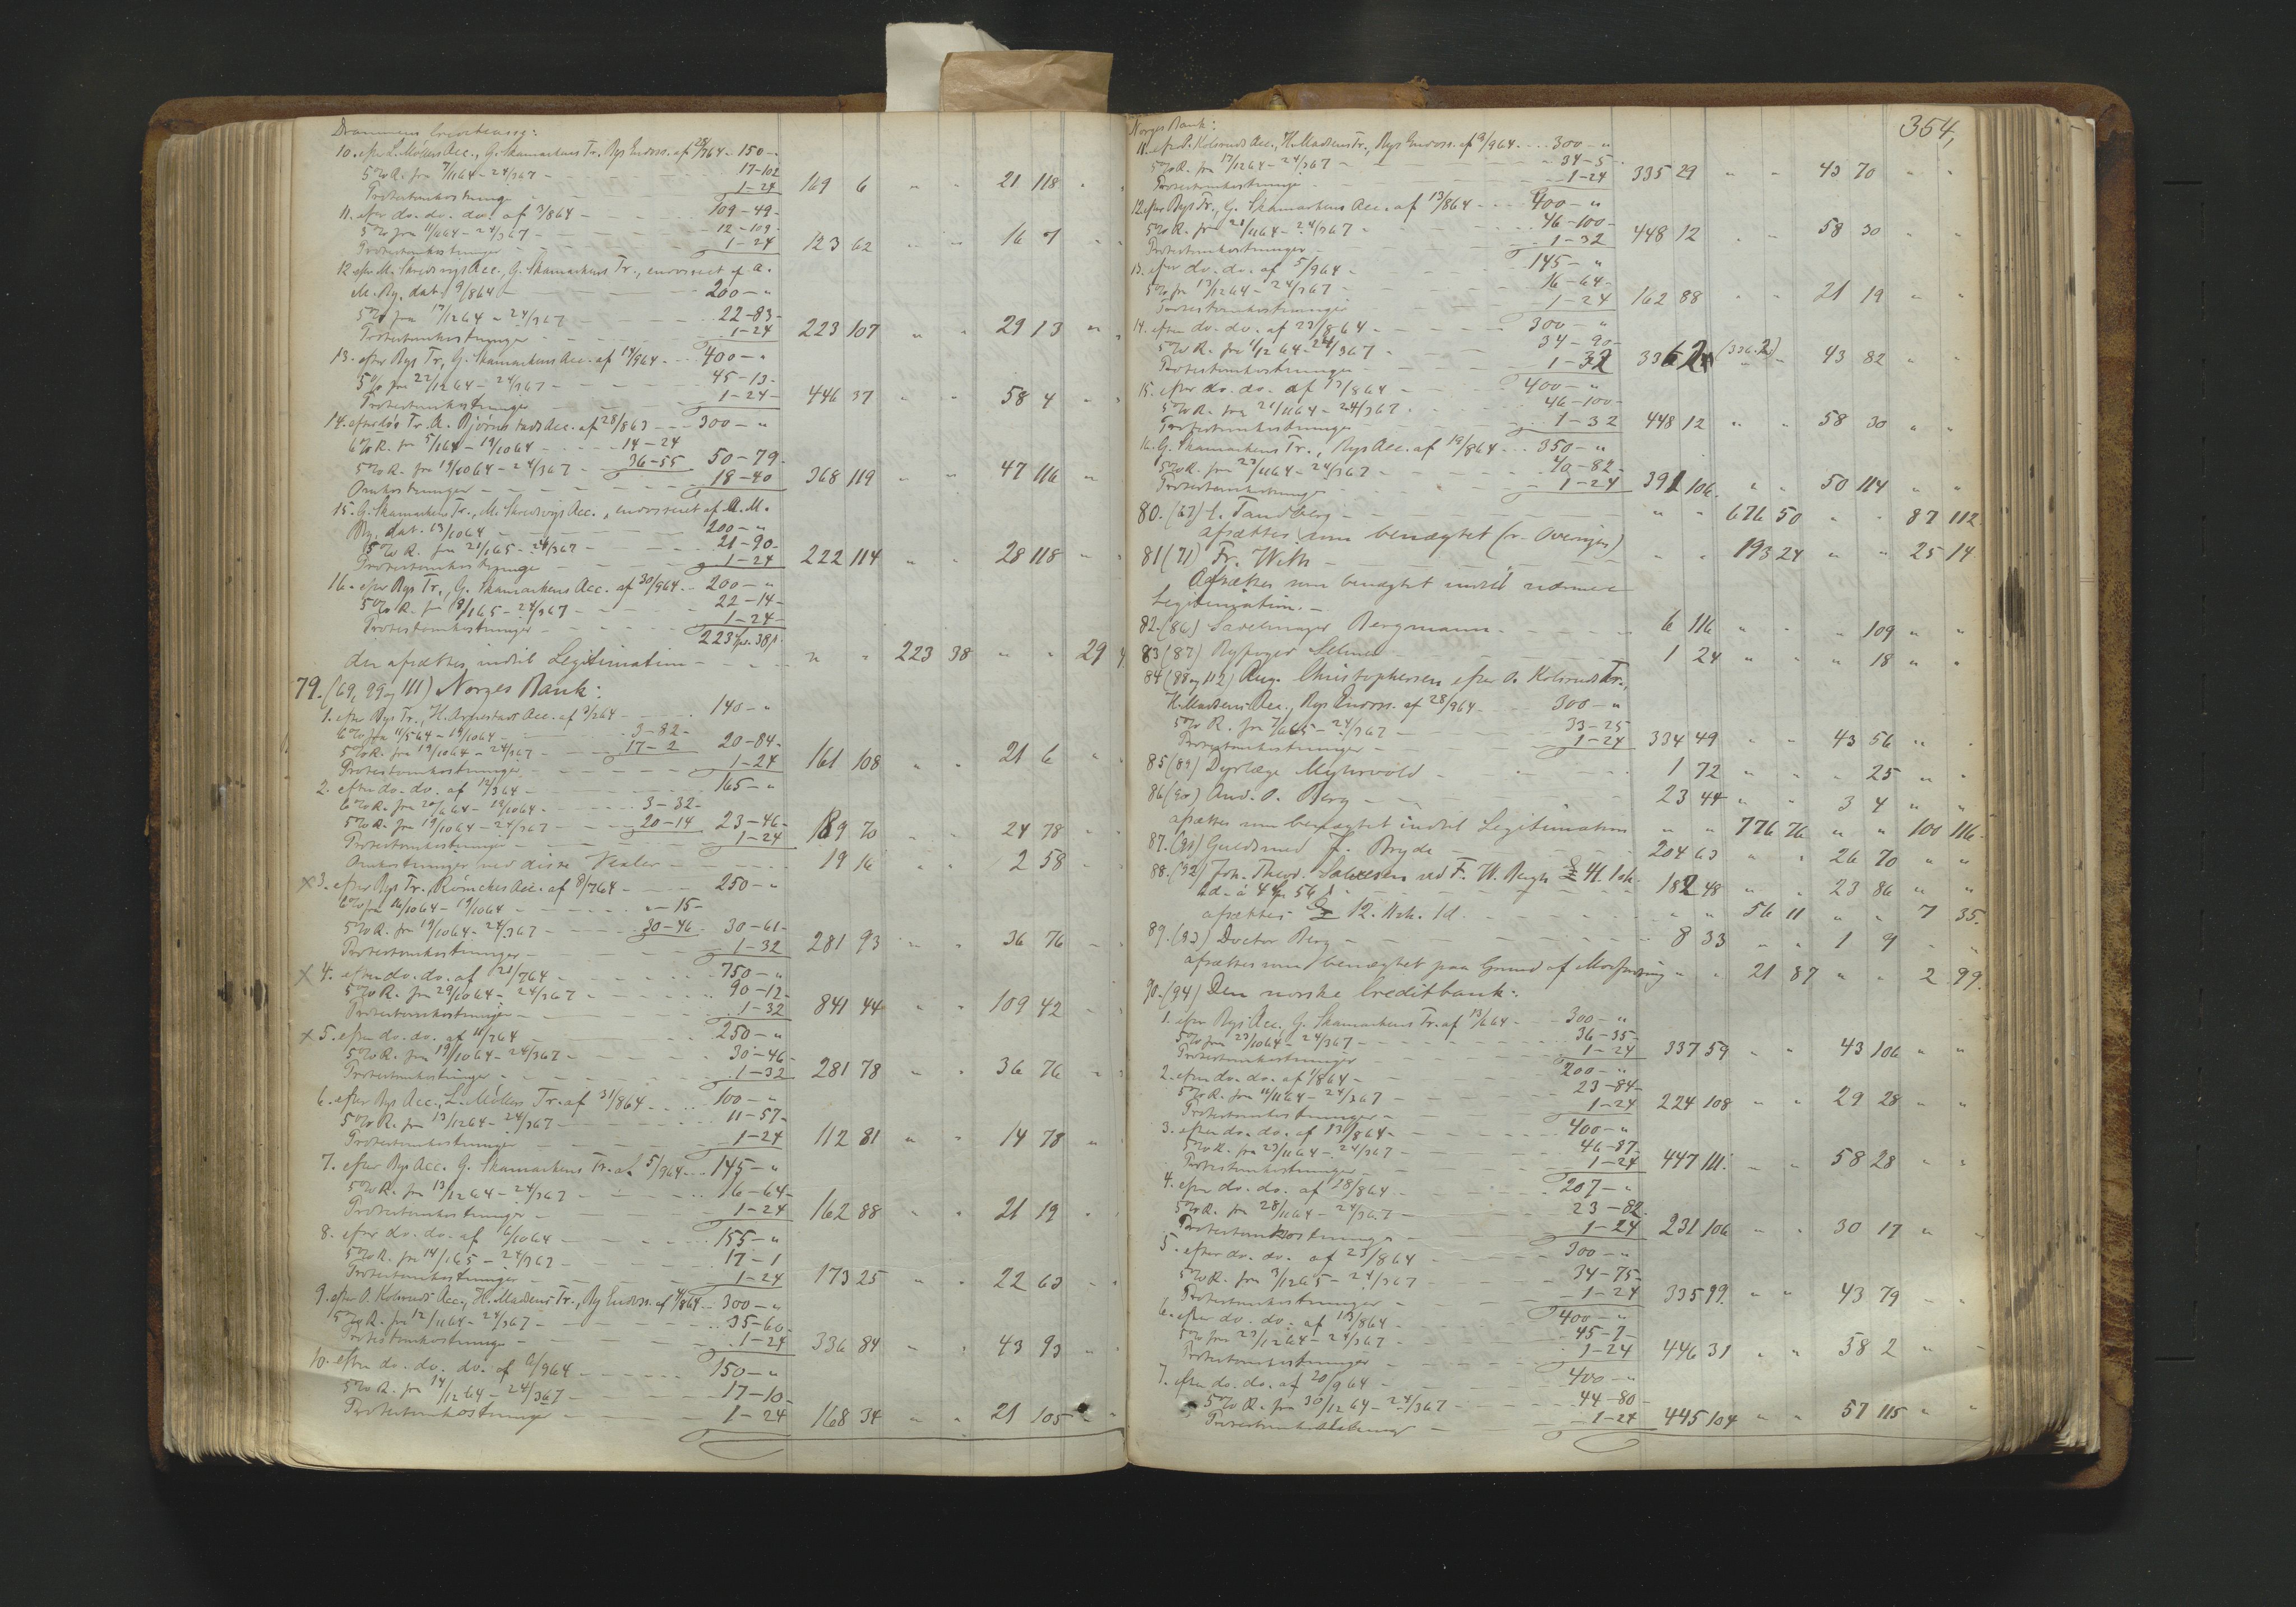 Drammens Creditcasse:
10. efter L. Møllers Acc., G. Skamarkens Tr. Rys Endoss. af 28/764 - 150 - "
5% R. fra 7/1164 - 24/367 - 17-102
Protestomkostninger - 1-24 169 6 " " 21 118 " "
11. efter do. do. do. af 3/864 - 109-49-
5% fra 11/1164 - 24/367 - 12-109-
Protestomkostninger - 1-24 123 62 " " 16 7 " "
12 efter M. Skredsvigs Acc., G. Skamarkens Tr., endosseret af A.
M. Ry, dat. 9/864 - 200 - "
5% fra 17/1264 - 24/367 - 22-83-
Protestomkostninger - 1-24 223 107 " " 29 13 " "
13. efter Rys Tr., G. Skamarkens Acc. af 14/964 - 400 - "
5% fra 22/1264 - 24/367 - 45-13-
Protestomkostninger - 1-24- 446 37 " " 58 4 " "
14. efter dós Tr. A. Bjørnstads Acc. af 28/863 - 300 - "
6% R. fra 5/164 - 19/1064 - 14-24
5% R. fra 19/1064 - 24/367 - 36-55 50-79-
Omkostninger - 18-40 368 119 " " 47 116 " "
15. G. Skamarkens Tr., M. Skredsvigs Acc., endosseret af A. M.
Ry, dat. 13/1064 - 200 - "
5% R. fra 21/165 - 24/367 - 21-90-
Protestomkostninger - 1-24 222 114 " " 28 118 " "
16. efter Rys Tr., G. Skamarkens Acc. af 30/964 - 200 - "
5% R. fra 8/165 - 24/367 - 22-14-
Protestomkostninger - 1-24-
223 Spd. 38 ß.
der afsættes indtil Legitimation - " " 223 38 " " 29 4
79. (69, 99 og 111) Norges Bank:
1. efter Rys Tr., H. Arnestads Acc. af 3/264 - 140 - "
6% fra 11/564 - 19/1064 - 3-82-
5% R. fra 19/1064 - 24/367 - 17-2 20-84-
Protestomkostninger - 1-24 161 108 " " 21 6 " "
2. efter do. do. af 12/364 - 165 - "
6% R. fra 20/664 - 19/1064 - 3-32-
5% R. fra 19/1064 - 24/367 - 20-14 23-46-
Protestomkostninger - 1-24 189 70 " " 24 78 " "
Omkostninger ved disse Vexler - 19 16 " " 2 58 "
x 3. efter Rys Tr., Rómckes Acc. af 8/764 - 250 - "
6% fra 16/1064 - 19/1064 - " - 15-
5% R. fra 19/1064 - 24/367 - 30-46 30-61-
Protestomkostninger - 1-32 281 93 " " 36 76 " "
x 4. efter do. do. af 21/764 - 750 - "
5% R. fra 29/1064 - 24/367 - 90-12-
Protestomkostninger - 1-32 841 44 " " 109 42 " "
x 5. efter do. do. af 11/764 - 250 - "
5% R. fra 19/1064 - 24/367 - 30-46-
Protestomkostninger - 1-32 281 78 " " 36 76 " "
6. efter Rys Acc., L. Møllers Tr. af 31/864 - 100 - "
5% R. fra 13/1264 - 24/367 - 11-57-
Protestomkostninger - 1-24 112 81 " " 14 78 "
7. efter Rys Acc. G. Skamarkens Tr. af 5/964 - 145 - "
5% R. fra 13/1264 - 24/367 - 16-64-
Protestomkostninger - 1-24 162 88 " " 21 19 "
8. efter do. do. af 6/1064 - 155 - "
5% R. fra 14/165 - 24/367 - 17-1
Protestomkostninger - 1-24 173 25 " " 22 63 " "
9. efter O. Kolsruds Acc., H. Madsens Tr., Ry Endoss. af 4/864 - 300 - "
5% R. fra 12/1164 - 24/367 - 35-60-
Protestomkostninger - 1-24 336 84 " " 43 93 " "
10. efter do. do. do. af 6/964 - 150 - "
5% R. fra 14/1264 - 24/367 - 17-10-
Protestomkostninger - 1-24 168 34 " " 21 105 " "
354,
Norges Bank:
11. efter O. Kolsruds Acc., H. Madsens Tr., Rys Endoss. af 9/964 - 300 - "
5% R. fra 17/1264 - 24/367 - 34-5-
Protestomkostninger - 1-24 335 29 " " 43 70 " "
12. efter Rys Tr., G. Skamarkens Acc. af 13/864 - 400 - "
5% R. fra 21/1164 - 24/367 - 46-100-
Protestomkostninger - 1-32 448 12 " " 58 30 " "
13. efter do. do. af 5/964 - 145 - "
5% fra 13/1264 - 24/367 - 16-64-
Protestomkostninger - 1-24 162 88 " " 21 19 " "
14. efter do. do. af 23/864 - 300 - "
5% R. fra 1/1264 - 24/367 - 34-90-
Protestomkostninger - 1-32 336 2 (336.2) " - 43 82 " "
15. efter do. do. af 13/864 - 400 - "
5% R. fra 21/1164 - 24/367 - 46-100-
Protestomkostninger - 1-32 448 12 " " 58 30 " "
16. G. Skamarkens Tr., Rys Acc. af 19/864 - 350 - "
5% R. fra 23/1164 - 24/367 - 40-82-
Protestomkostninger - 1-24 391 106. " " 50 114 " "
80. (67) E. Tandberg - " " 676 50 " " 87 112
afsættes som benægtet (v. Overinges)
81 (71) Fr. Weth - " " 193 24 " " 25 14
Afsættes som benægtet indtil nærmere
Legitimation. -
82. (86) Sadelmager Bergmann - 6 116 " " " 109 " "
83 (87) Byfoged Selmer - 1 24 " " " 18 " "
84 (88 og 112) Aug. Christophersen efter O. Kolsruds Tr.,
H. Madsens Acc., Rys Endoss. af 28/964 - 300 - "
5% R. fra 7/165 - 24/367 - 33-25
Protestomkostninger - 1-24 334 49 " " 43 56 " "
85 (89) Dyrlæge Myhrvold - 1 72 " " " 25 " "
86 (90) And. O. Berg - 23 44 " " 3 4 " "
afsættes som benægtet indtil Legitimation " " 776 76 " " 100 116.
87. (91) Guldsmed J. Bryde - 204 63 " " 26 70 " "
88. (92) Joh. Theod. Salvesen ved F. W. Bergh £ 41. 1 sh.
4d. á 4 Sp 56 ß - 182 48 " " 23 86 " "
afsættes £ 12. 11 sh. 1d. - " " 56 11 " " 7 35.
89. (93) Doctor Berg - 8 33 " " 1 9 " "
afsættes som benægtet paa Grund af Modfordring " " 21 87 " " 2 99.
90. (94) Den norske Creditbank:
1. efter Rys Acc. G. Skamarkens Tr. af 13/664 - 300 - "
5% fra 23/1064 - 24/367 - 36-35-
Protestomkostninger - 1-24 337 59 " " 43 106 " "
2. efter do. do. af 1/864 - 200 - "
5% R. fra 11/1164 - 24/367 - 23-84-
Protestomkostninger - 1-24 224 108 " " 29 28 " "
3. efter do. do. af 13/864 - 400 - "
5% R. fra 23/1164 - 24/367 - 46-87-
Protestomkostninger - 1-24 447 111. " " 58 28 " "
4. efter do. do. af 18/864 - 207 - "
5% R. fra 28/1164 - 24/367 - 23-82.
Protestomkostninger - 1-24 231 106 " " 30 17 " "
5. efter do. do. af 23/864 - 300 - "
5% R. fra 3/1265 - 24/367 - 34-75-
Protestomkostninger - 1-24 335 99. " " 43 79 " "
6. efter do. do. af 13/864 - 400 - "
5% fra 23/1264 - 24/367 - 45-7-
Protestomkostninger - 1-24 446 31 " " 58 2 " "
7. efter do. do. af 20/964 - 400 - "
5% R. fra 30/1264 - 24/367 - 44-80-
Protestomkostninger - 1-24 445 104 " " 57 115 " "